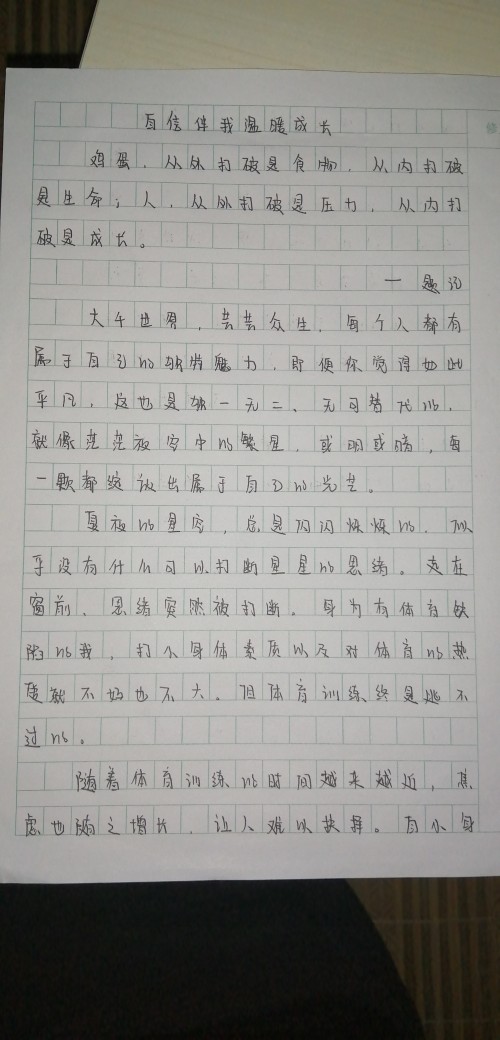 自信伴我温暖成长
鸡蛋，从外打破是食物，从内打破
是生命；人，从外打破是压力，从内打
破是成长。
一 题记
大千世界，芸芸众生，每个人都有
属于自己的独特魅力，即便你觉得如此
平凡，这也是独一无二、无可替代的，
就像茫茫夜空中的繁星，或明或暗，每
一颗都绽放出属于自己的光芒。
夏夜的星空，总是闪闪烁烁的，似
乎没有什么可以打断星星的思绪。走在
窗前，思绪突然被打断。身为有体育缺
陷的我，打小身体素质以及对体育的热
度就不好也不大。但体育训练终是逃不
过的。
随着体育训练的时间越来越近，焦
虑也随之增长，让人难以抉择。自小身